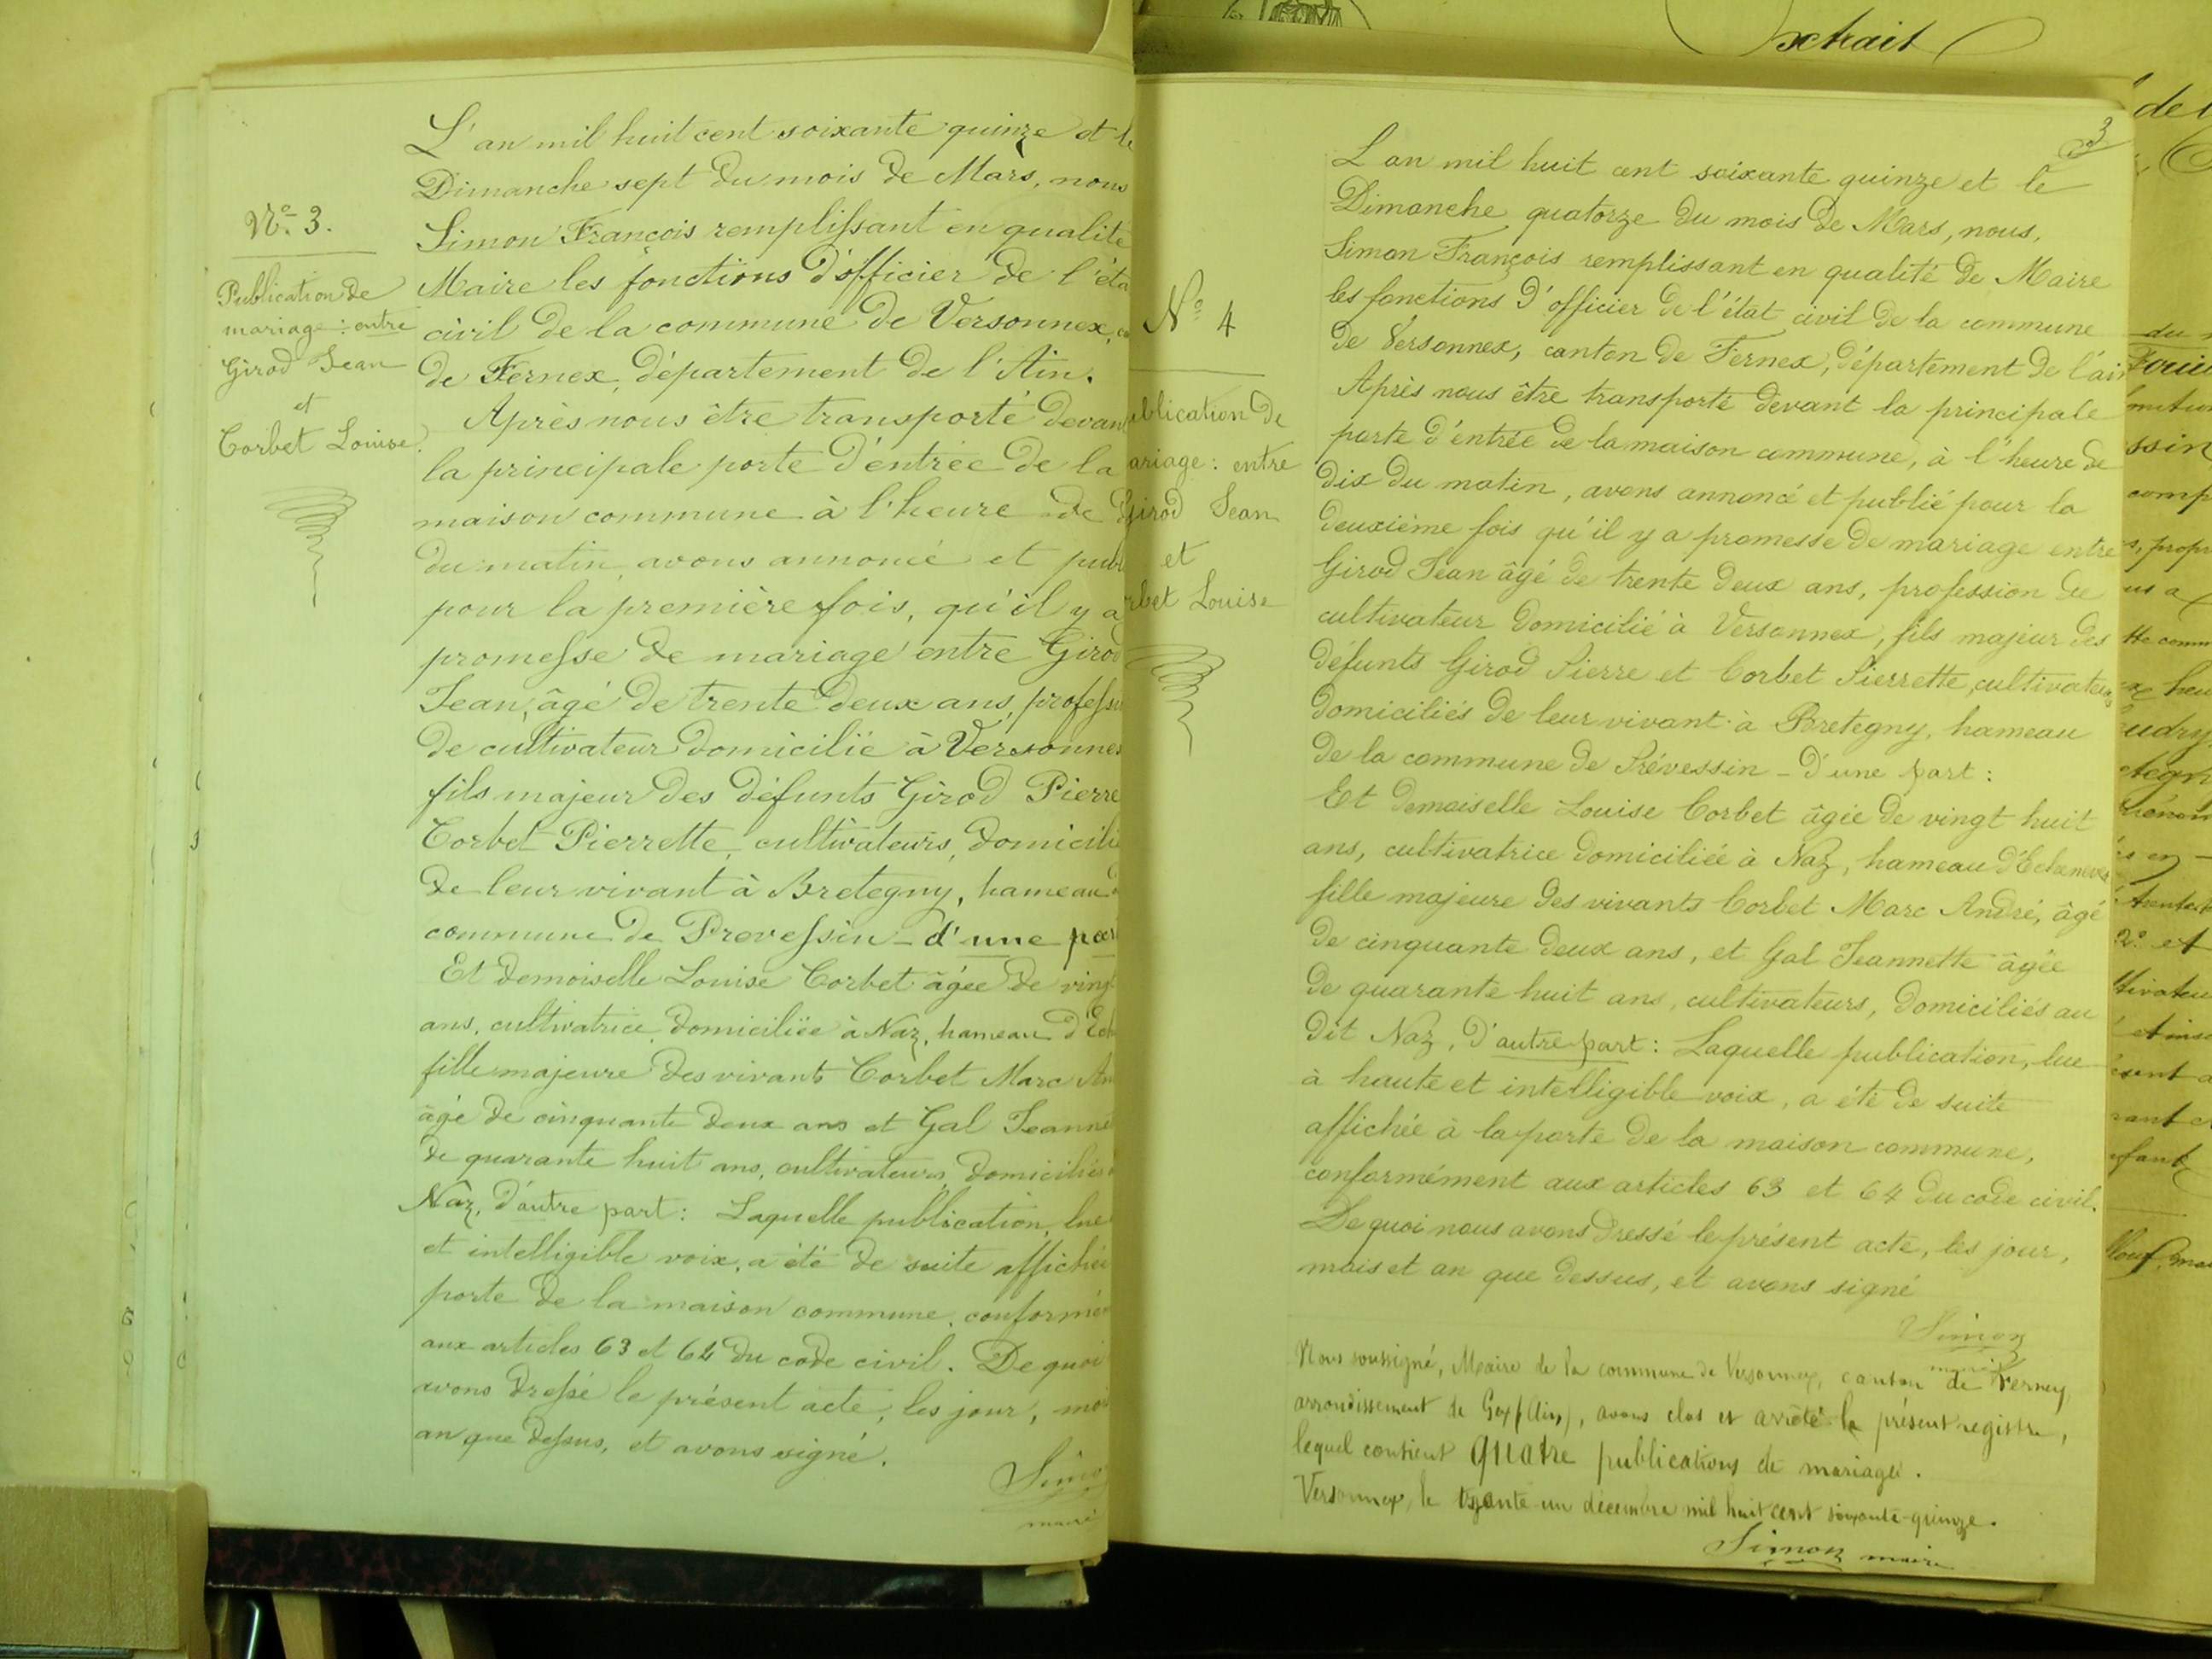 N° 3.
Publication de
mariage : entre
Girod Jean
et
Corbet Louise.
L'an mil huit cent soixante quinze et le
Dimanche sept du mois de Mars, nous
Simon François remplissant en qualité
Maire les fonctions d'officier de l'éta
civil de la commune de Versonnex, ca
de Fernex, département de l'Ain.
Après nous être transporté devant
la principale porte d'entrée de la
maison commune à l'heure de d
du matin, avons annoncé et publ
pour la première fois, qu'il y a
promesse de mariage entre Girod
Jean, âgé de trente deux ans, professi
de cultivateur domicilié à Versonnex
fils majeur des défunts Girod Pierre
Corbet Pierrette, cultivateurs, domicili
de leur vivant à Bretegny, hameau d
commune de Prevessin - d'une par
Et demoiselle Louise Corbet âgée de vingt
ans, cultivatrice, domiciliée à Naz, hameau d'Ech
fille majeure des vivants Corbet Marc An
âgé de cinquante deux ans et Gal Jeanne
de quarante huit ans, cultivateurs, domiciliés
Naz, d'autre part : Laquelle publication, lue
et intelligible voix, a été de suite affichée
porte de la maison commune, conformé
aux articles 63 et 64 du code civil. De quoi
avons dressé le présent acte, les jour, moi
an que dessus, et avons signé.
Simo
maire
3
N° 4
ublication de
ariage : entre
Girod Jean
et
rbet Louise
L'an mil huit cent soixante quinze et le
Dimanche quatorze du mois de Mars, nous,
Simon François remplissant en qualité de Maire
les fonctions d'officier de l'état civil de la commune
de Versonnex, canton de Fernex, département de l'ain
Après nous être transporté devant la principale
porte d'entrée de la maison commune, à l'heure de
dix du matin, avons annoncé et publié pour la
deuxième fois qu'il y a promesse de mariage entre
Girod Jean âgé de trente deux ans, profession de
cultivateur domicilié à Versonnex, fils majeur des
défunts Girod Pierre et Corbet Pierrette, cultivateurs
domiciliés de leur vivant à Bretegny, hameau
de la commune de Prévessin - d'une part :
Et demoiselle Louise Corbet âgée de vingt huit
ans, cultivatrice domiciliée à Naz, hameau d'Echenevex
fille majeure des vivants Corbet Marc André, âgé
de cinquante deux ans, et Gal Jeannette âgée
de quarante huit ans, cultivateurs, domiciliés au
dit Naz, d'autre part : Laquelle publication, lue
à haute et intelligible voix, a été de suite
affichée à la porte de la maison commune,
conformément aux articles 63 et 64 du code civil.
De quoi nous avons dressé le présent acte, les jour,
mois et an que dessus, et avons signé
Simon
maire
Nous soussigné, Maire de la commune de Versonnex, canton de Ferney,
arrondissement de Gex (Ain), avons clos et arrêté le présent registre,
lequel contient quatre publications de mariage.
Versonnex, le trente-un décembre mil huit cent soixante-quinze.
Simon maire
Extrait